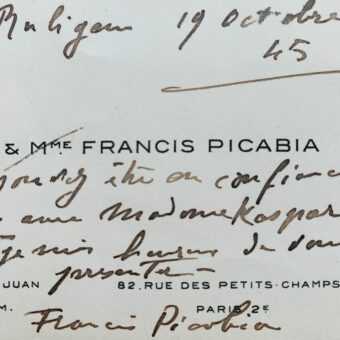 Rubigen 19 Octobre
45
& MME FRANCIS PICABIA
être en confiance
avec Madame Kaspar
je suis heureux de vous
présenter
JUAN 82. RUE DES PETITS-CHAMPS
M. PARIS 2E
Francis Picabia